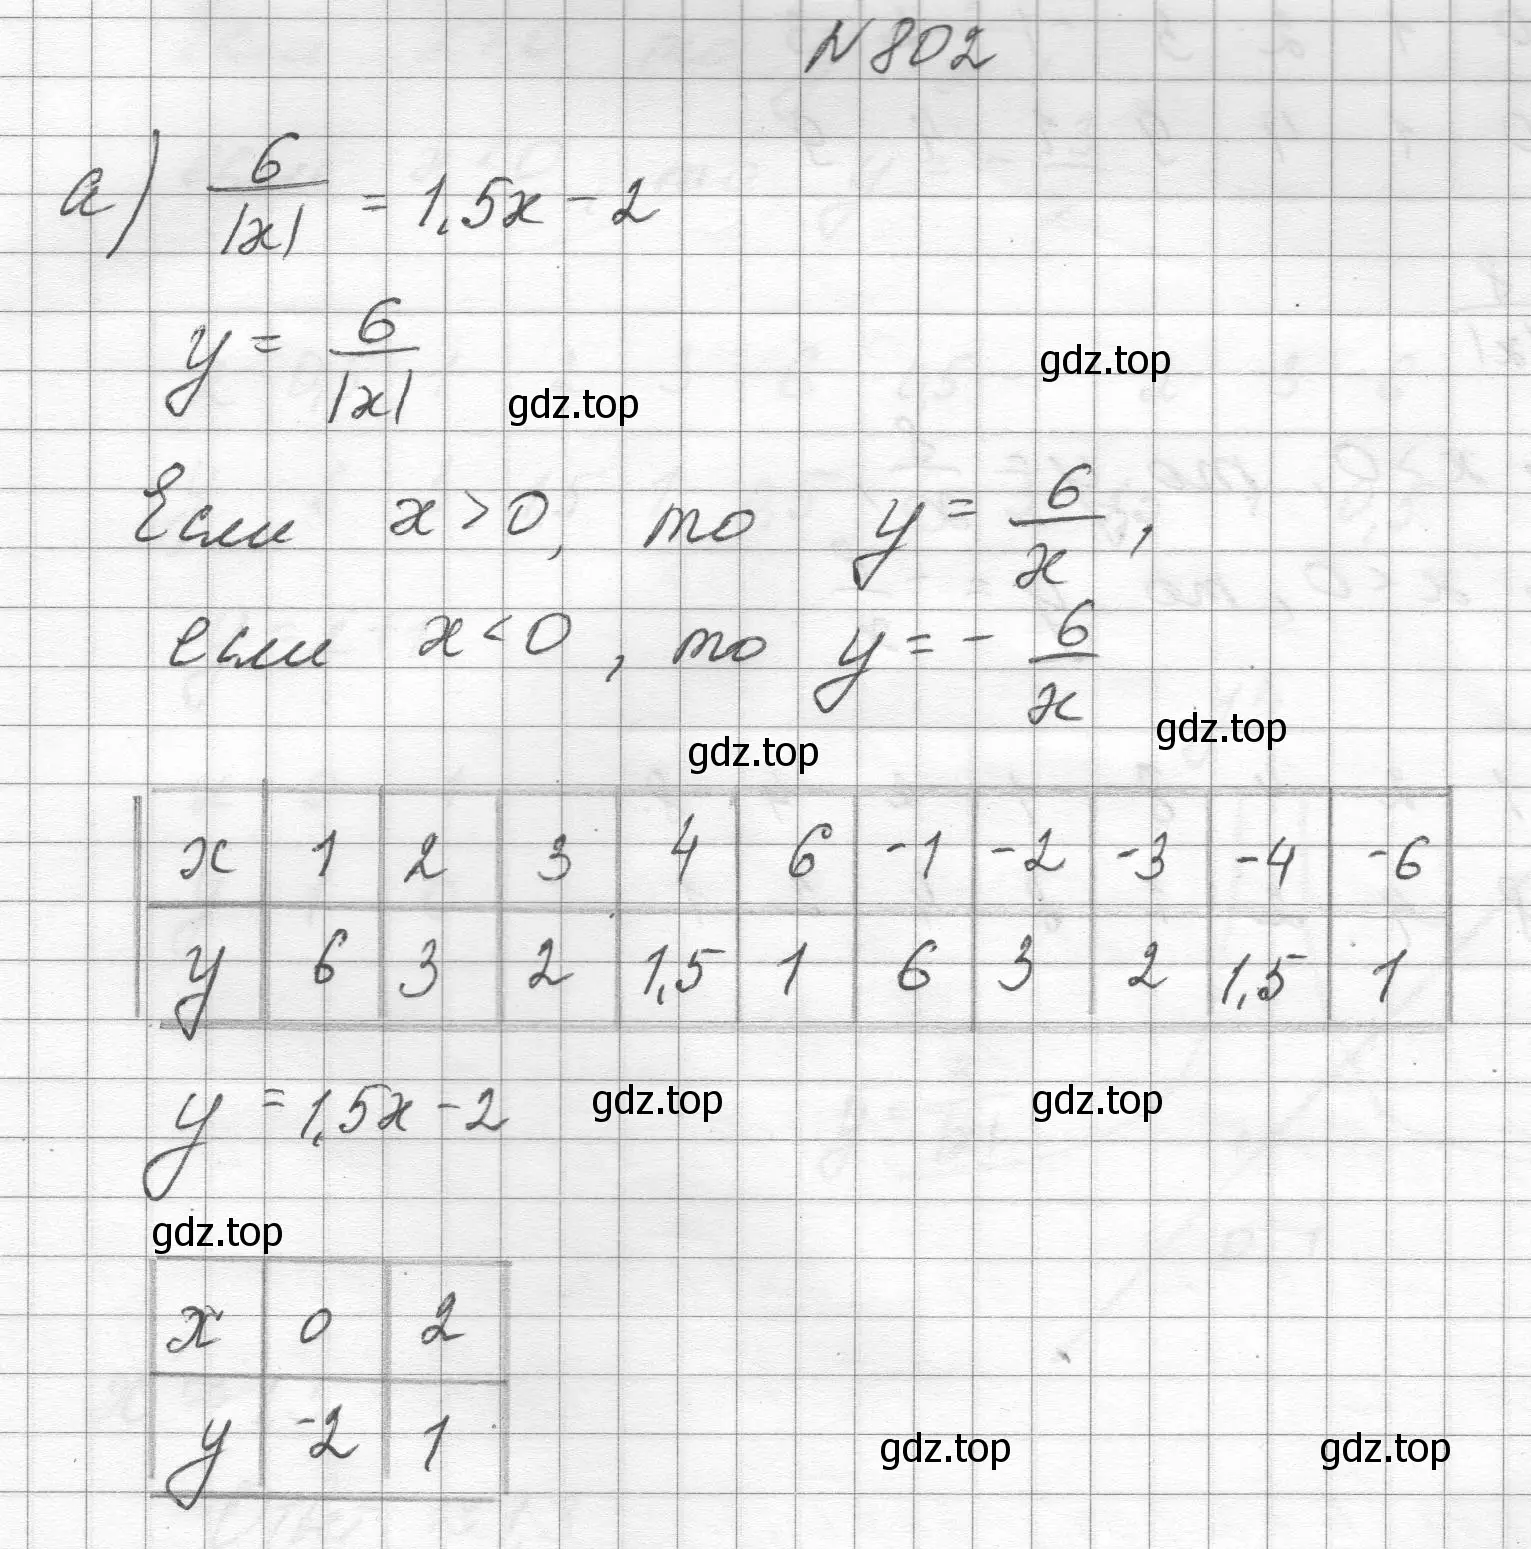 N 802
а) 6/|x| = 1,5x - 2
y = 6/|x|
gdz.top
gdz.top
Если x > 0, то y = 6/x,
если x < 0, то y = - 6/x
gdz.top
gdz.top
x 1 2 3 4 6 -1 -2 -3 -4 -6
y 6 3 2 1,5 1 6 3 2 1,5 1
y = 1,5x - 2
gdz.top
gdz.top
gdz.top
x 0 2
y -2 1
gdz.top
gdz.top